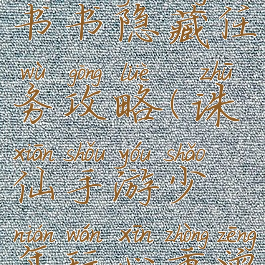 书书隐藏任
wù gōng lüè zhū
务攻略(诛
xiān shǒu yóu shǎo
仙手游少
nián wǒn xīn shōng zēng